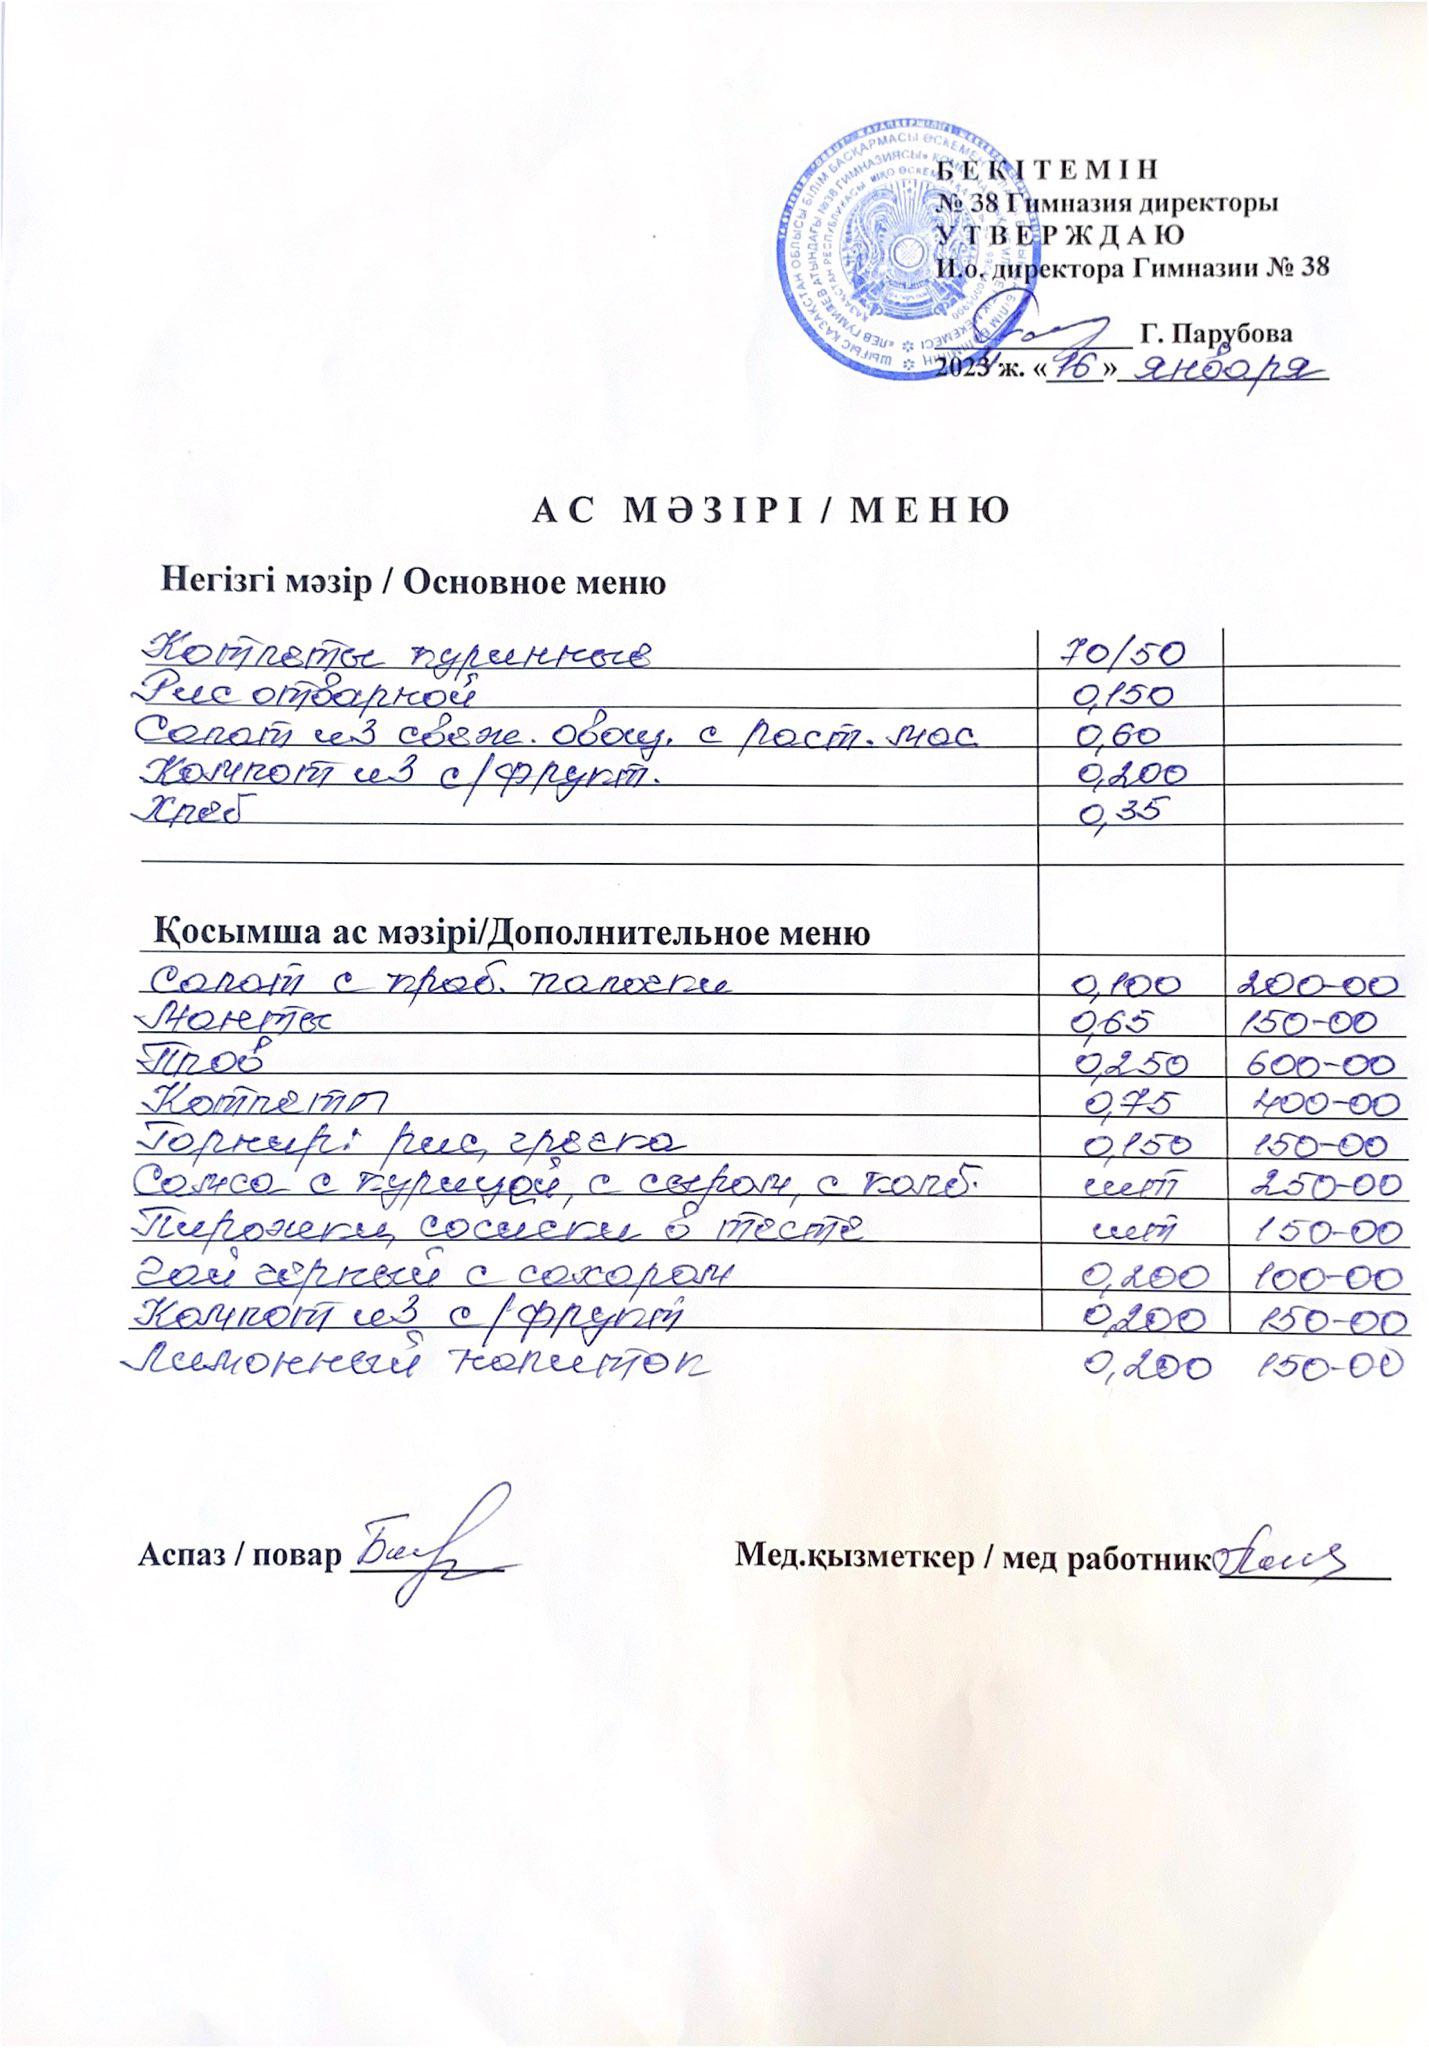 БЕКІТЕМІН
№ 38 Гимназия директоры
УТВЕРЖДАЮ
И.о. директора Гимназии № 38
Г. Парубова
2023 ж. «16» января
АС МӘЗІРІ / МЕНЮ
Негізгі мәзір / Основное меню
Котлеты куринные 70/50
Рис отварной 0,150
Салат из свеж. овощ. с раст. мас. 0,60
Компот из с/фрукт. 0,200
Хлеб 0,35
Қосымша ас мәзірі/Дополнительное меню
Салат с краб. палочки 0,100 200-00
Манты 0,65 150-00
Плов 0,250 600-00
Котлеты 0,75 400-00
Гарнир: рис, гречка 0,150 150-00
Самса с курицей, с сыром, с колб. шт 250-00
Пирожки, сосиски в тесте шт 150-00
Чай чёрный с сахаром 0,200 100-00
Компот из с/фрукт 0,200 150-00
Лимонный напиток 0,200 150-00
Аспаз / повар
Мед.қызметкер / мед работник